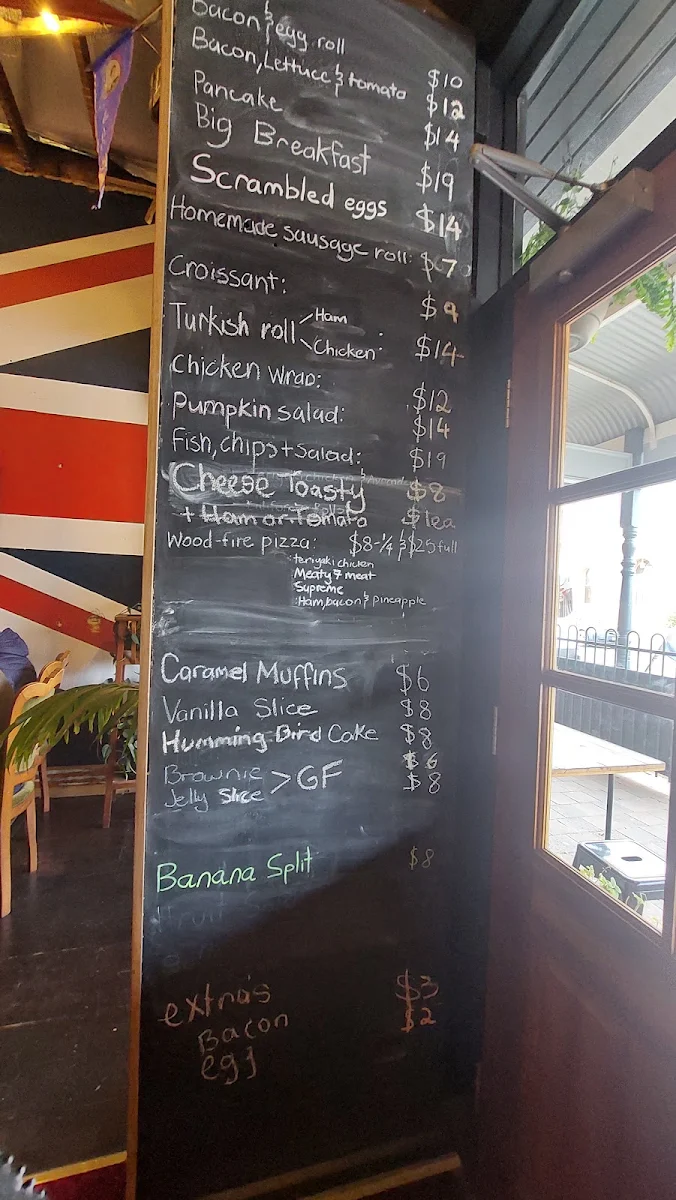 Bacon & egg roll $10
Bacon, Lettuce & tomato $12
Pancake $14
Big Breakfast $19
Scrambled eggs $14
Homemade sausage roll: $7
Croissant: $9
Turkish roll Ham
Chicken: $14
Chicken wrap: $12
Pumpkin salad: $14
Fish, chips + salad: $19
Cheese Toasty $8
+ Ham or Tomato $1ea
Wood-fire pizza: $8-1/4 & $25 full
teriyaki chicken
Meaty 7 meat
Supreme
Ham, bacon & pineapple
Caramel Muffins $6
Vanilla Slice $8
Humming Bird Cake $8
Brownie > GF $6
Jelly Slice $8
Banana Split $8
extra's $3
Bacon $2
egg